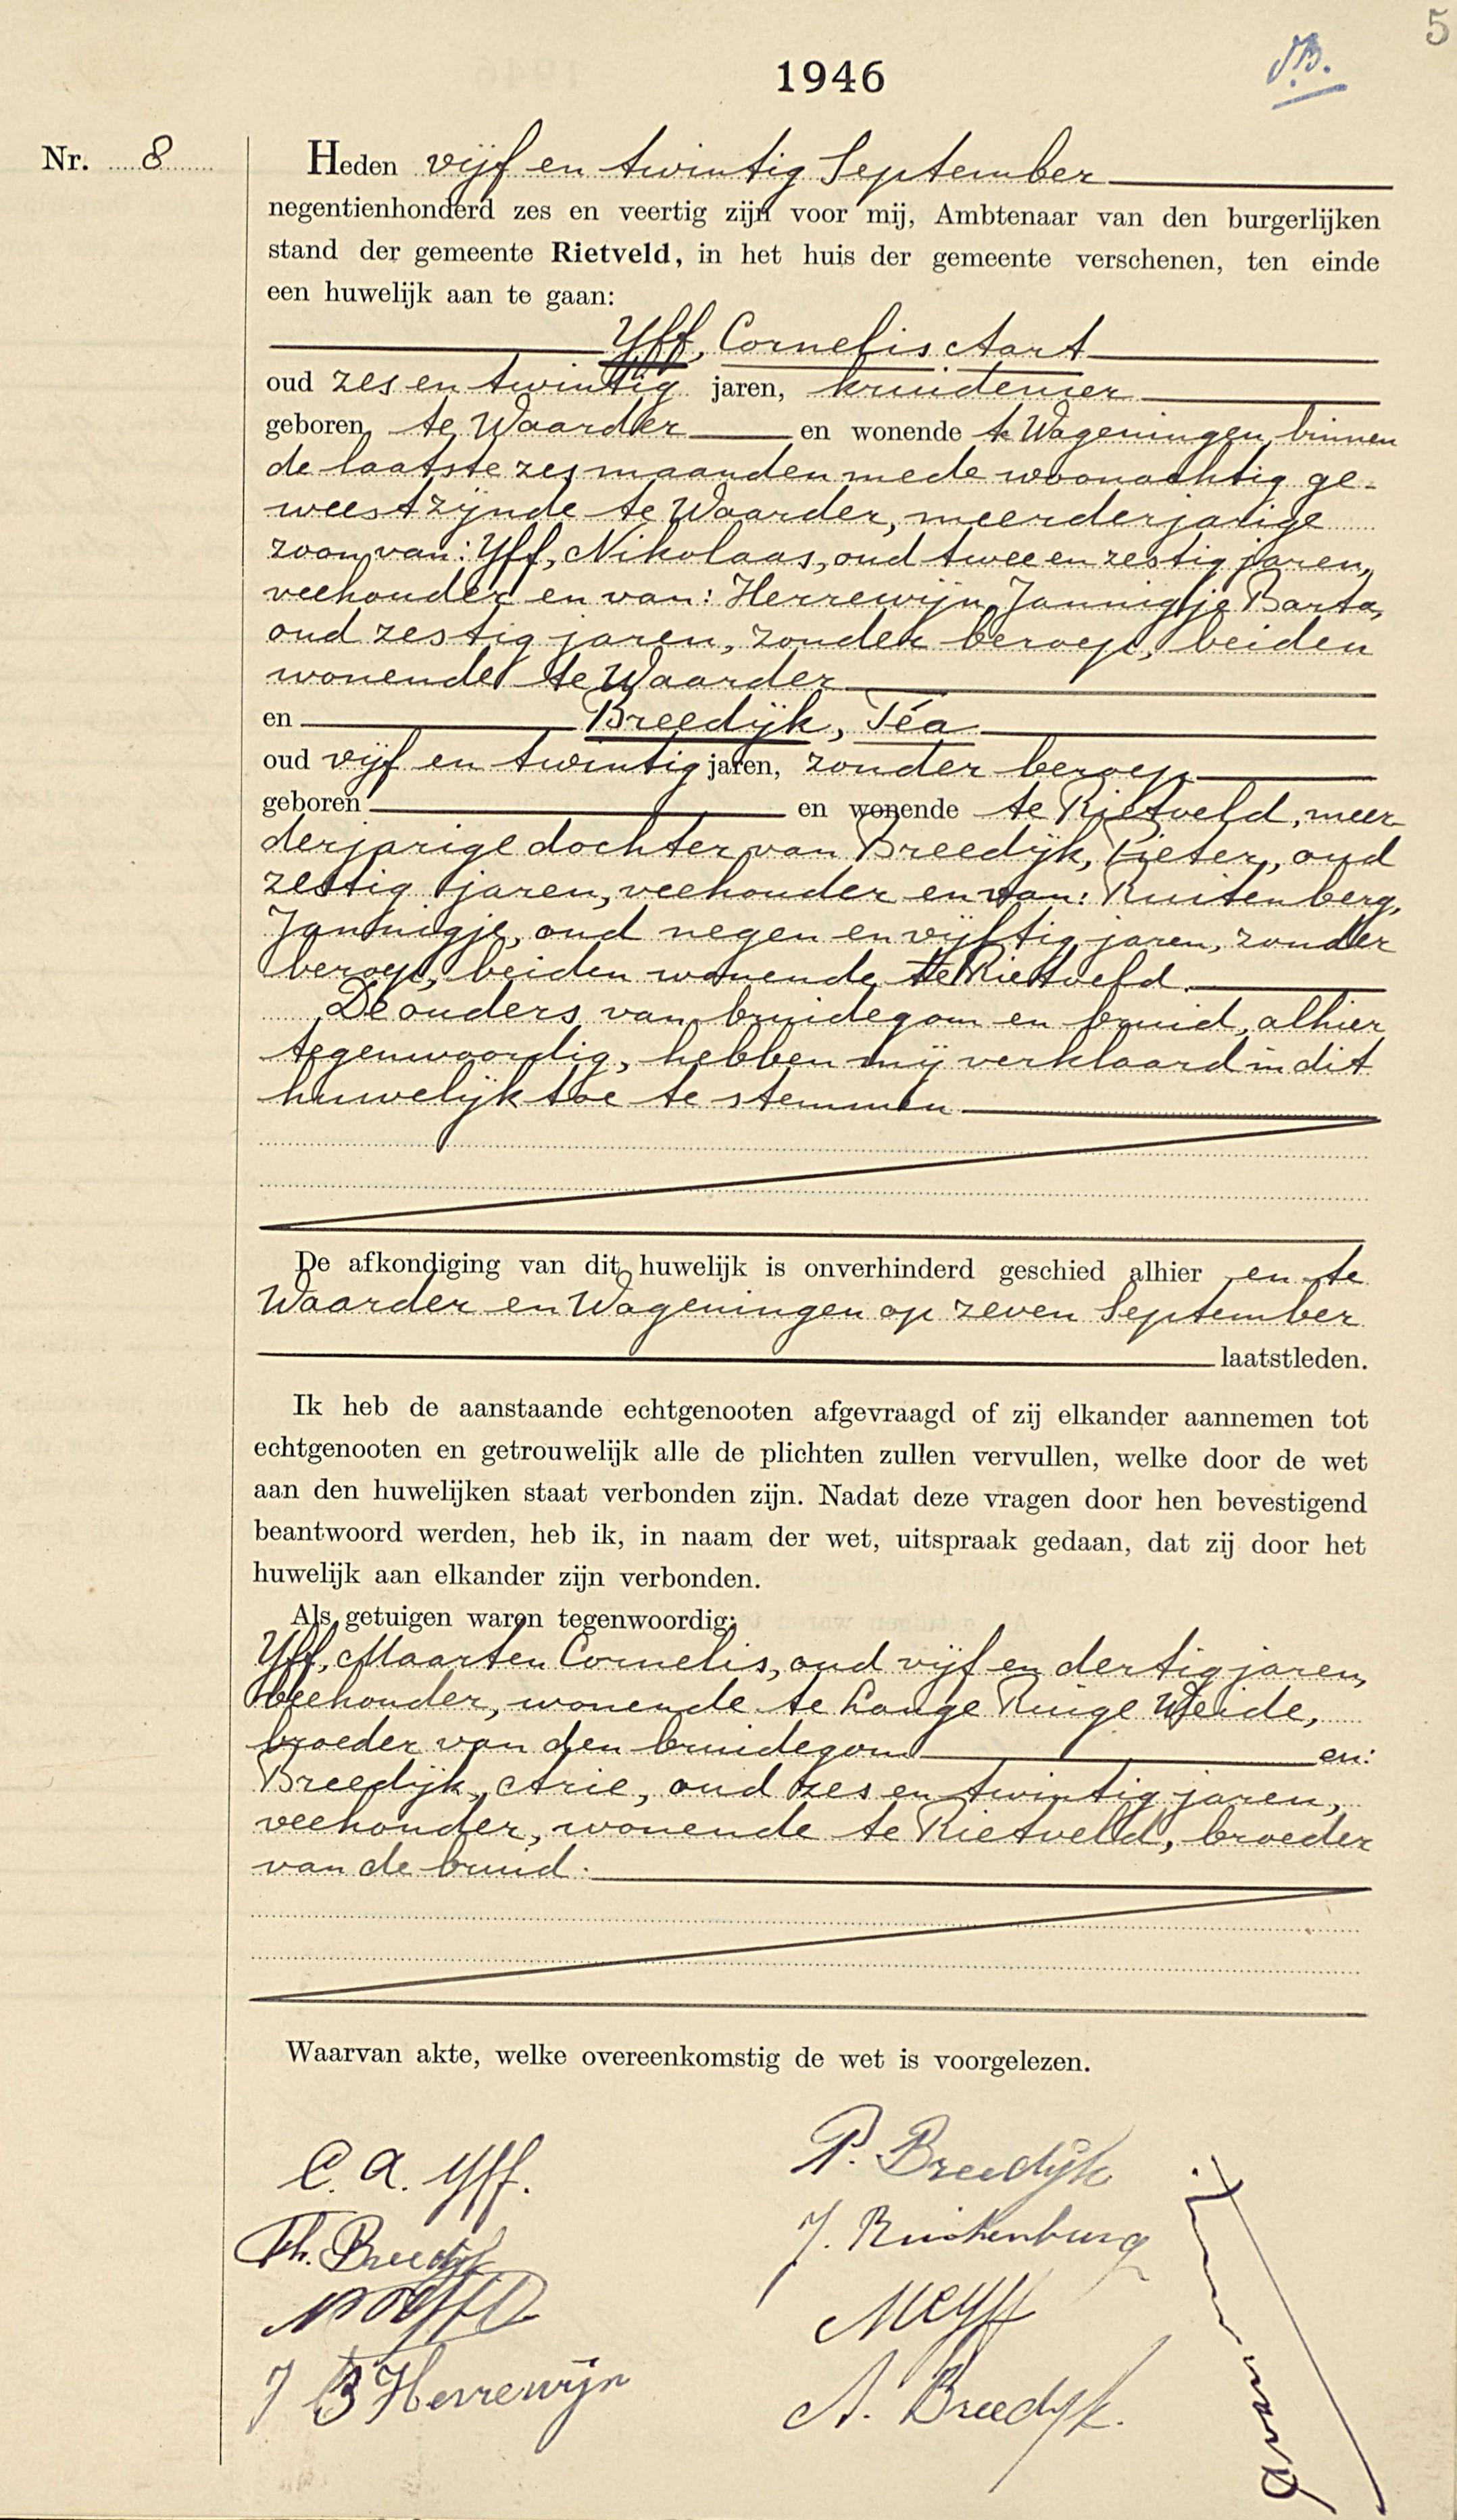 5
1946
J.B.
Nr. 8
Heden vijf en twintig September
negentienhonderd zes en veertig zijn voor mij, Ambtenaar van den burgerlijken
stand der gemeente Rietveld, in het huis der gemeente verschenen, ten einde
een huwelijk aan te gaan:
Yff, Cornelis Aart
oud zes en twintig jaren, kruidenier
geboren te Waarder en wonende te Wageningen, binnen
de laatste zes maanden mede woonachtig ge-
weest zijnde te Waarder, meerderjarige
zoon van: Yff, Nikolaas, oud twee en zestig jaren,
veehouder en van: Herrewijn, Jannigtje Barta,
oud zestig jaren, zonder beroep, beiden
wonende te Waarder
en Breedijk, Téa
oud vijf en twintig jaren, zonder beroep
geboren en wonende te Rietveld, meer-
derjarige dochter van Breedijk, Pieter, oud
zestig jaren, veehouder en van: Ruitenberg,
Jannigje, oud negen en vijftig jaren, zonder
beroep, beiden wonende te Rietveld.
De ouders van bruidegom en bruid, alhier
tegenwoordig, hebben mij verklaard in dit
huwelijk toe te stemmen
De afkondiging van dit huwelijk is onverhinderd geschied alhier en te
Waarder en Wageningen op zeven September
laatstleden.
Ik heb de aanstaande echtgenooten afgevraagd of zij elkander aannemen tot
echtgenooten en getrouwelijk alle de plichten zullen vervullen, welke door de wet
aan den huwelijken staat verbonden zijn. Nadat deze vragen door hen bevestigend
beantwoord werden, heb ik, in naam der wet, uitspraak gedaan, dat zij door het
huwelijk aan elkander zijn verbonden.
Als getuigen waren tegenwoordig:
Yff, Maarten Cornelis, oud vijf en dertig jaren,
veehouder, wonende te Lange Ruige Weide,
broeder van den bruidegom en:
Breedijk, Arie, oud zes en twintig jaren,
veehouder, wonende te Rietveld, broeder
van de bruid.
Waarvan akte, welke overeenkomstig de wet is voorgelezen.
C. A. Yff.
P. Breedijk
Th. Breedijk
J. Ruitenburg
N Yff
M C Yff
J B Herrewijn
A. Breedijk.